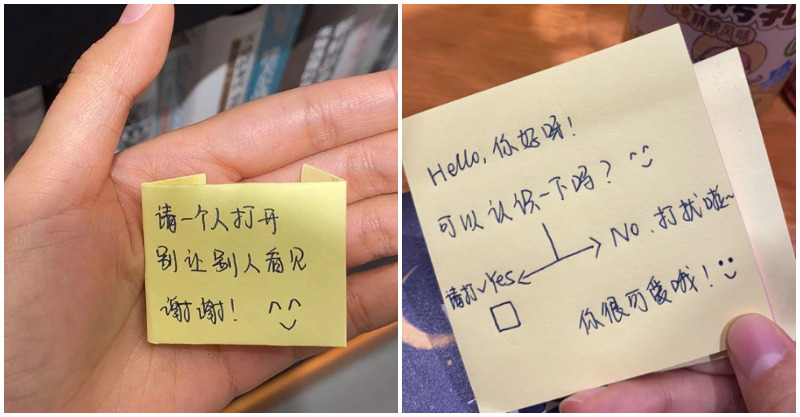 请一个人打开
别让别人看见
谢谢! ^^
Hello, 你好呀!
可以认识一下吗?
No. 打扰啦~
请打✓Yes
你很可爱哦!
精酿风味